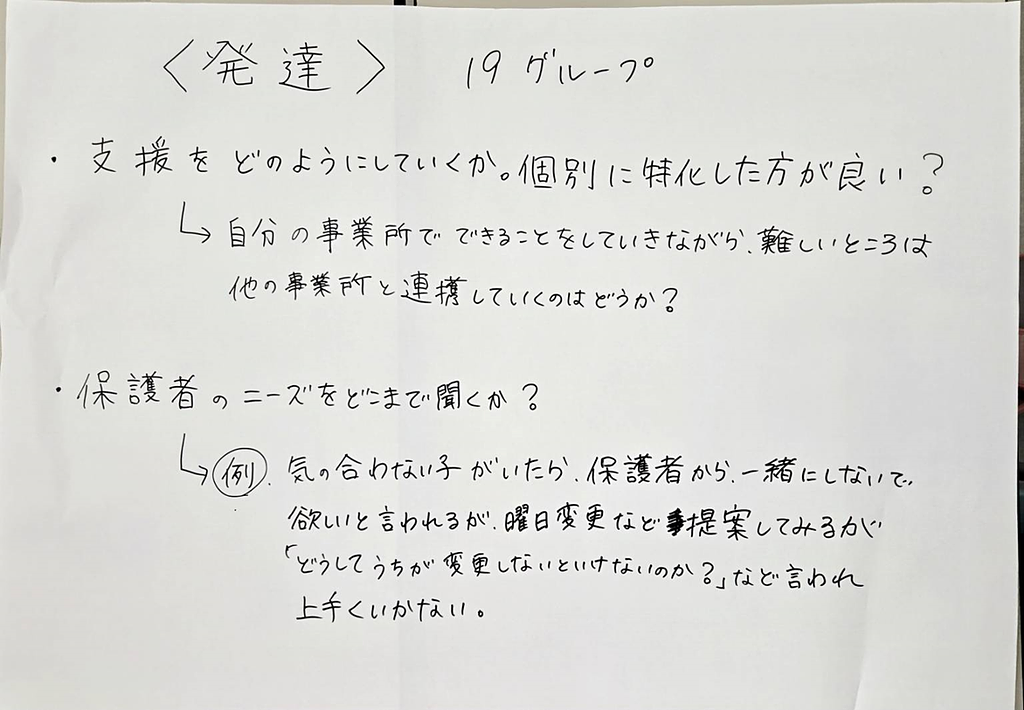 〈発達〉 19グループ
・支援をどのようにしていくか。個別に特化した方が良い？
↳自分の事業所でできることをしていきながら、難しいところは
他の事業所と連携していくのはどうか？
・保護者のニーズをどこまで聞くか？
↳例.気の合わない子がいたら、保護者から、一緒にしないで
欲しいと言われるが、曜日変更など提案してみるが
「どうしてうちが変更しないといけないのか？」など言われ
上手くいかない。